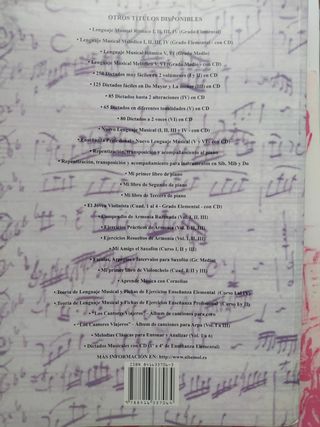 OTROS TÍTULOS DISPONIBLES
• Lenguaje Musical Rítmico I, II, III, IV (Grado Elemental)
• Lenguaje Musical Melódico I, II, III, IV (Grado Elemental - con CD)
• Lenguaje Musical Rítmico V, VI (Grado Medio)
• Lenguaje Musical Melódico V, VI (Grado Medio - con CD)
• 250 Dictados muy fáciles en 2 volúmenes (I y II) en CD
• 125 Dictados fáciles en Do Mayor y La menor (III) en CD
• 85 Dictados hasta 2 alteraciones (IV) en CD
• 65 Dictados en diferentes tonalidades (V) en CD
• 80 Dictados a 2 voces (VI) en CD
• Nuevo Lenguaje Musical (I, II, III y IV - con CD)
• Enseñanza Profesional - Nuevo Lenguaje Musical (V y VI - con CD)
• Repentización, transposición y acompañamiento al piano
• Repentización, transposición y acompañamiento para instrumentos en Sib, Mib y Do
• Mi primer libro de piano
• Mi libro de Segundo de piano
• Mi libro de Tercero de piano
• El Joven Violinista (Cuad. 1 al 4 - Grado Elemental - con CD)
• Compendio de Armonía Razonada (Vol. I, II, III)
• Ejercicios Prácticos de Armonía (Vol. I, II, III)
• Ejercicios Resueltos de Armonía (Vol. I, II, III)
• Mi Amigo el Saxofón (Curso I, II y III)
• Escalas, Arpegios e Intervalos para Saxofón (Gr. Medio)
• Mi primer libro de Violonchelo (Cuad. I, II y III)
• Aprende Música con Cornelius
• Teoría de Lenguaje Musical y Fichas de Ejercicios Enseñanza Elemental (Curso I al IV)
• Teoría de Lenguaje Musical y Fichas de Ejercicios Enseñanza Profesional (Curso I y II)
• "Los Cantores Viajeros" - Álbum de canciones para coro
• "Los Cantores Viajeros" - Álbum de canciones para Arpa (Vol. I a III)
• Melodías Clásicas para Entonar y Analizar (Vol. I)
• Dictados Musicales con CD (1º a 4º de Enseñanza Elemental)
MÁS INFORMACIÓN EN: http://www.sibemol.es